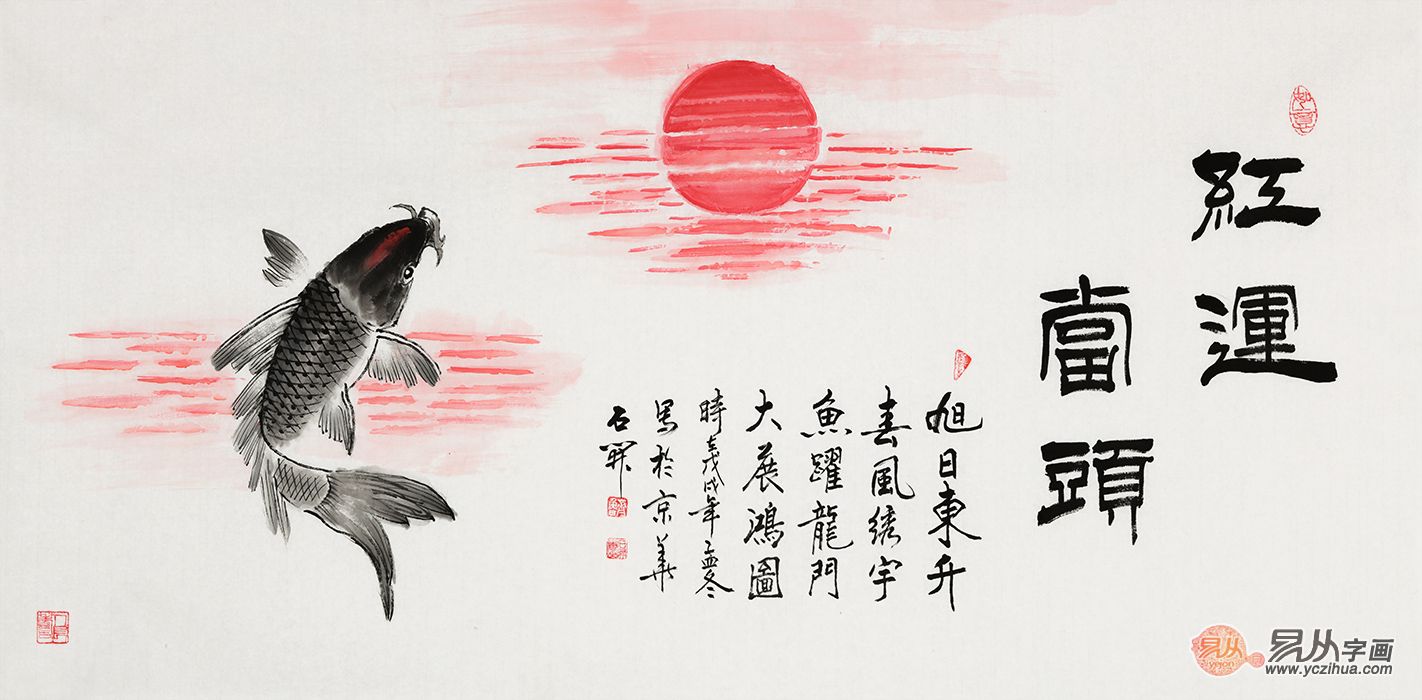 如意
紅運
當頭
旭日東升
春風綉宇
魚躍龍門
大展鴻圖
時在戊戌年孟冬
寫於京華
石開
易从字画
www.yczihua.com